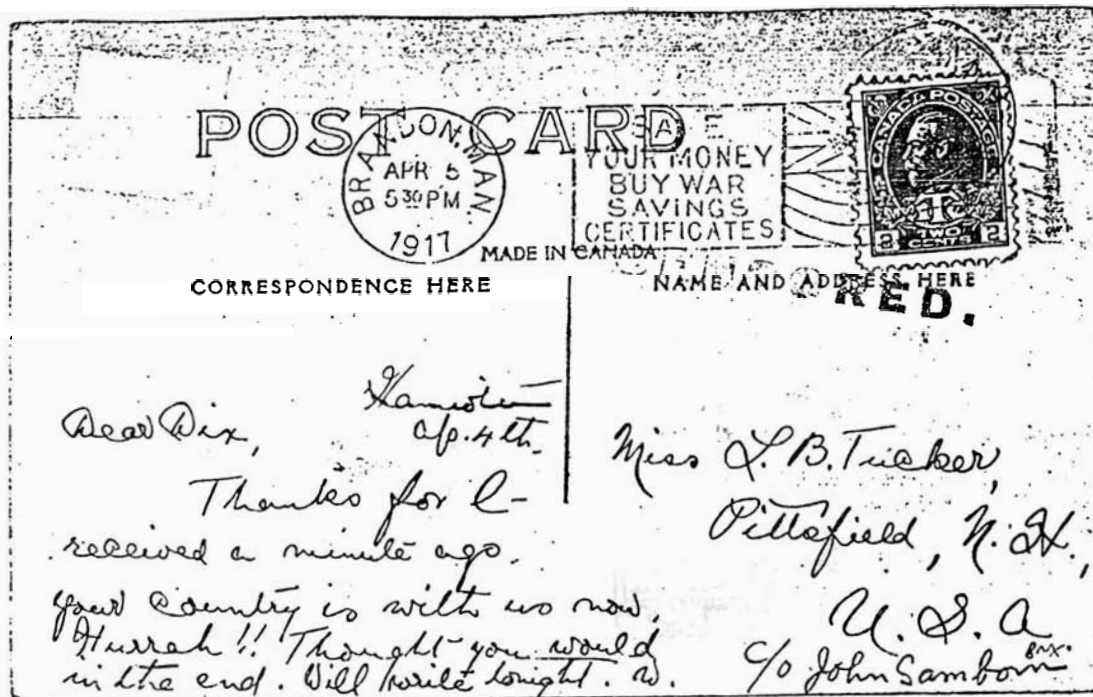 POST CARD
BRANDON, MAN.
APR 5
5 30 PM
1917
SAVE
YOUR MONEY
BUY WAR
SAVINGS
CERTIFICATES
CANADA POSTAGE
2 TWO CENTS 2
MADE IN CANADA
CORRESPONDENCE HERE
NAME AND ADDRESS HERE
RED.
Hamiota
Ap. 4th.
Dear Dix,
Thanks for l-
received a minute ago.
your Country is with us now.
Hurrah!! Thought you would
in the end. Will write tonight. W.
Miss L. B. Tucker,
Pittsfield, N. H.,
U. S. A
c/o John Samborn